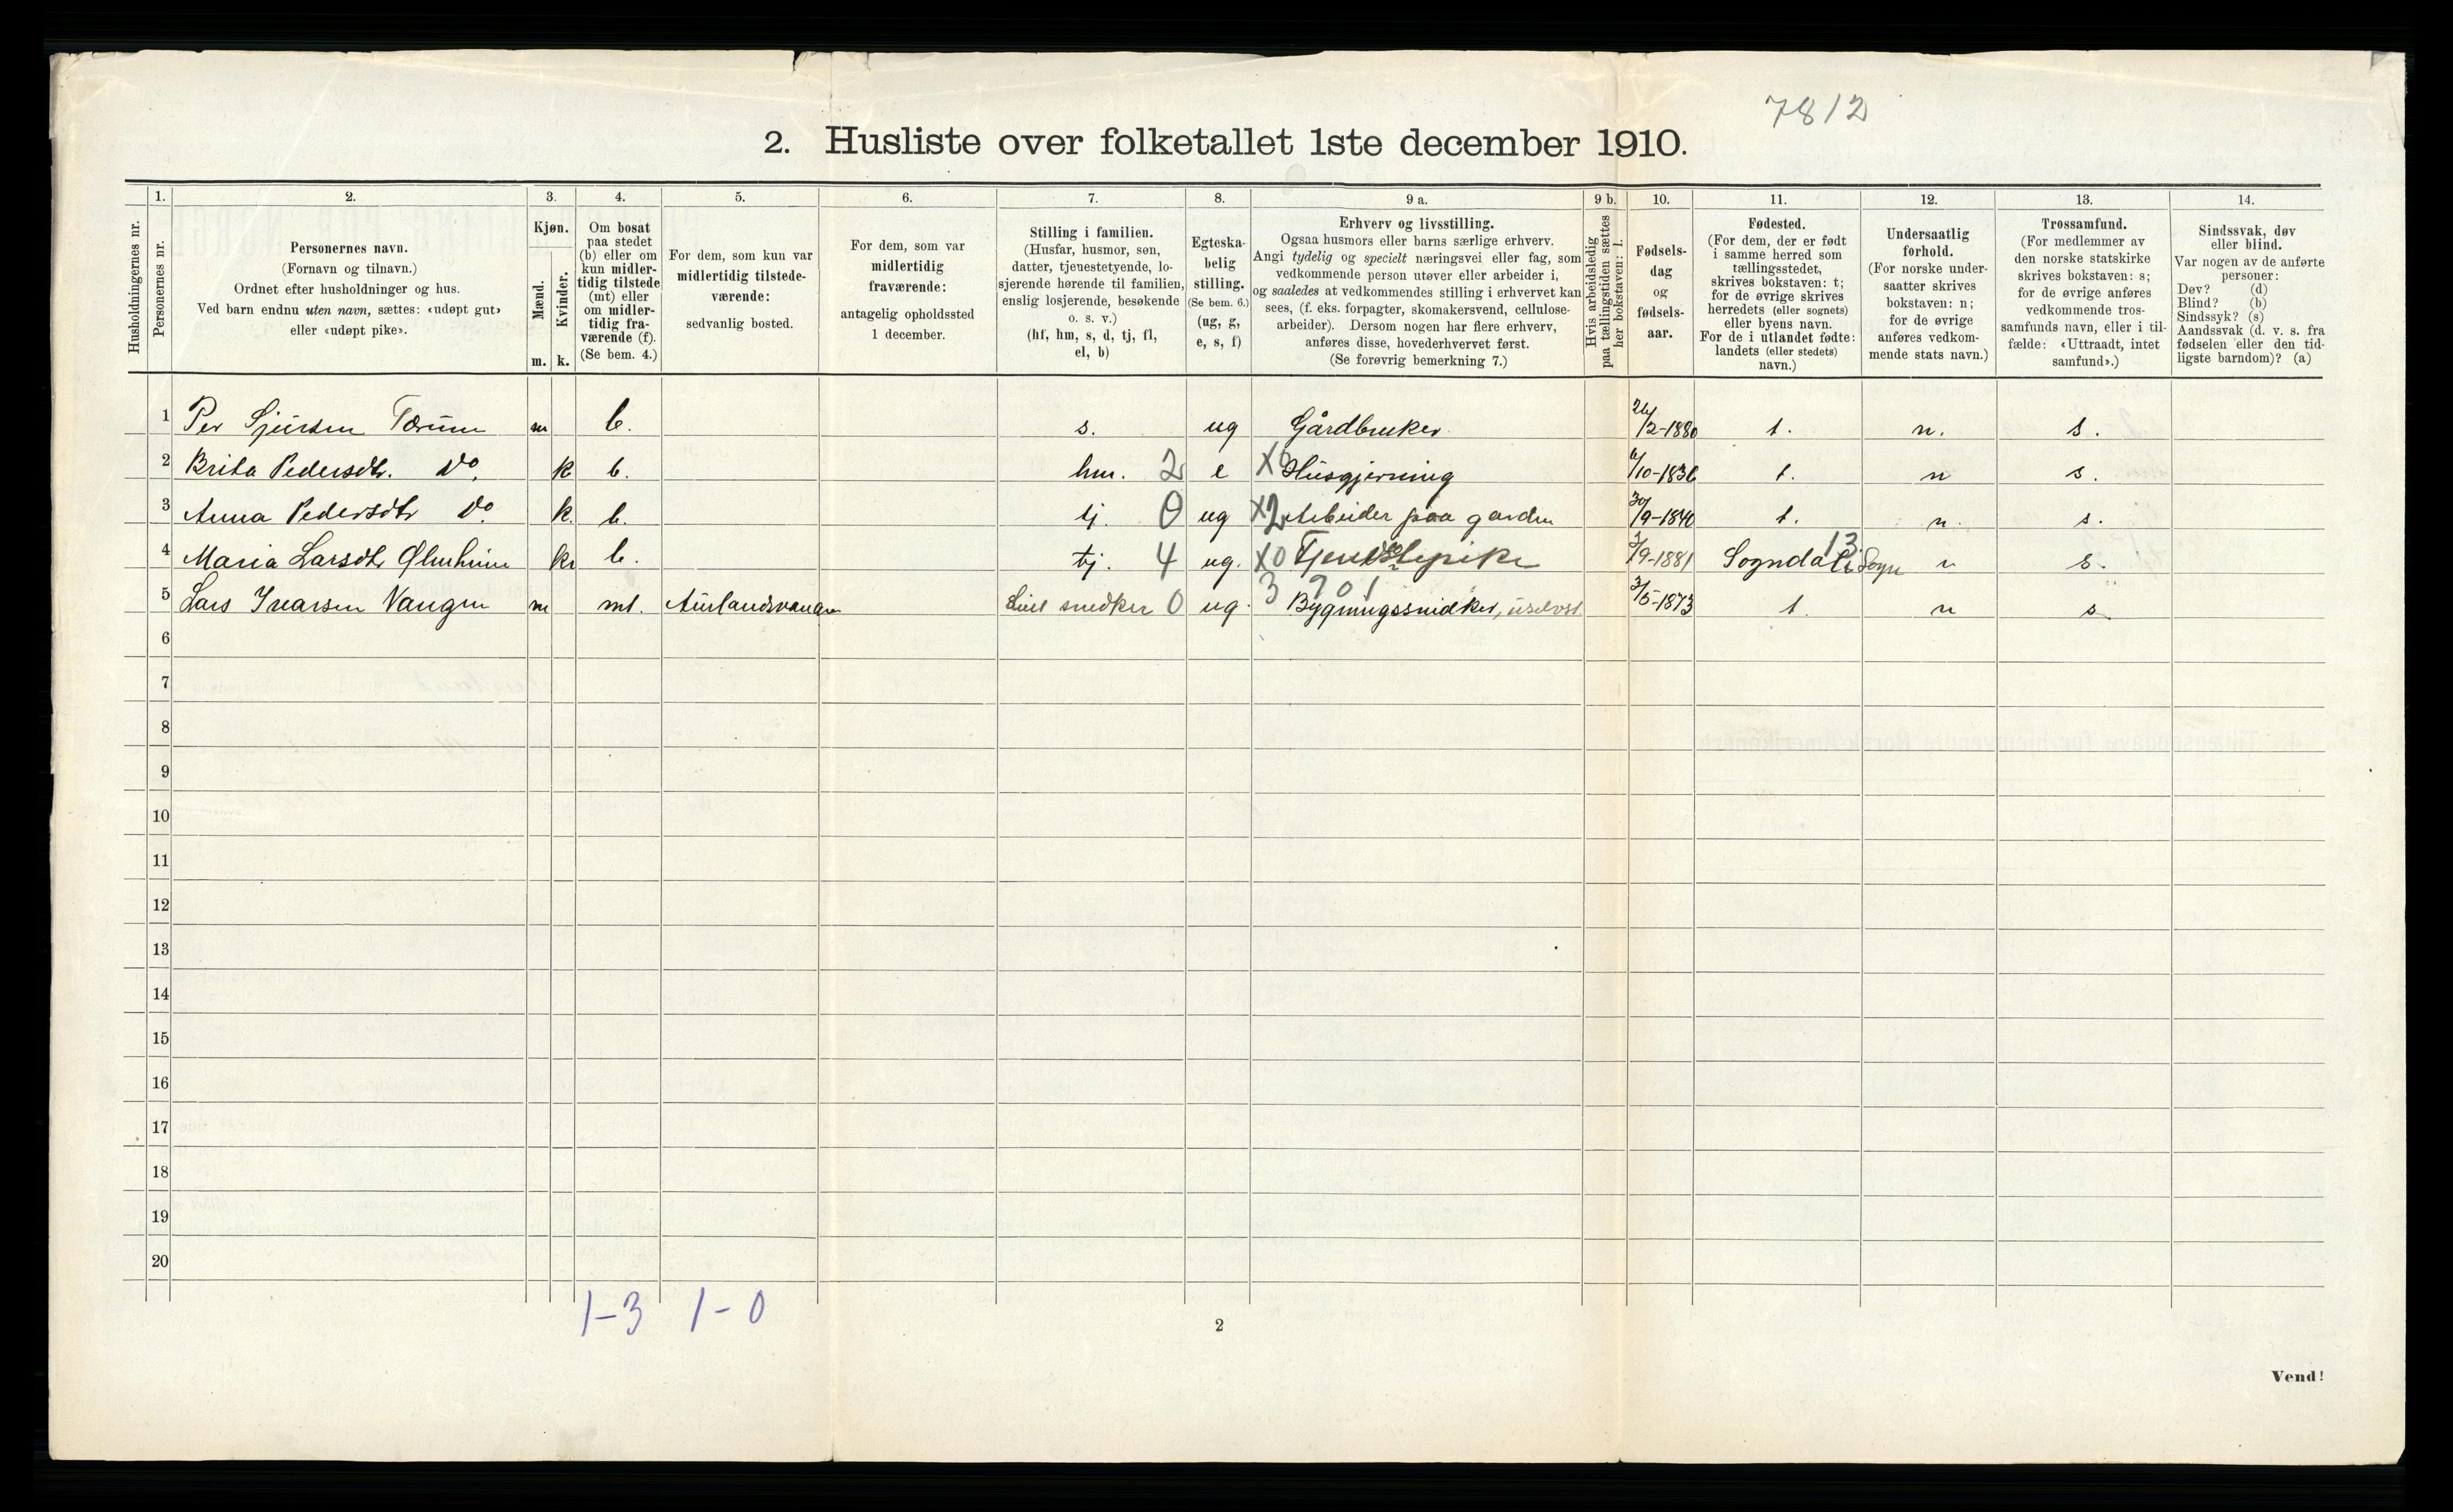 7812
2. Husliste over folketallet 1ste december 1910.
Husholdningernes nr.
1.
Personernes nr.
2.
Personernes navn.
(Fornavn og tilnavn.)
Ordnet efter husholdninger og hus.
Ved barn endnu uten navn, sættes: «udøpt gut»
eller «udøpt pike».
3.
Kjøn.
Mænd.
Kvinder.
m. k.
4.
Om bosat
paa stedet
(b) eller om
kun midler-
tidig tilstede
(mt) eller
om midler-
tidig fra-
værende (f).
(Se bem. 4.)
5.
For dem, som kun var
midlertidig tilstede-
værende:
sedvanlig bosted.
6.
For dem, som var
midlertidig
fraværende:
antagelig opholdssted
1 december.
7.
Stilling i familien.
(Husfar, husmor, søn,
datter, tjenestetyende, lo-
sjerende hørende til familien,
enslig losjerende, besøkende
o. s. v.)
(hf, hm, s, d, tj, fl,
el, b)
8.
Egteska-
belig
stilling.
(Se bem. 6.)
(ug, g,
e, s, f)
9 a.
Erhverv og livsstilling.
Ogsaa husmors eller barns særlige erhverv.
Angi tydelig og specielt næringsvei eller fag, som
vedkommende person utøver eller arbeider i,
og saaledes at vedkommendes stilling i erhvervet kan
sees, (f. eks. forpagter, skomakersvend, cellulose-
arbeider). Dersom nogen har flere erhverv,
anføres disse, hovederhvervet først.
(Se forøvrig bemerkning 7.)
9 b.
Hvis arbeidsledig
paa tællingstiden sættes
her bokstaven: l.
10.
Fødsels-
dag
og
fødsels-
aar.
11.
Fødested.
(For dem, der er født
i samme herred som
tællingsstedet,
skrives bokstaven: t;
for de øvrige skrives
herredets (eller sognets)
eller byens navn.
For de i utlandet fødte:
landets (eller stedets)
navn.)
12.
Undersaatlig
forhold.
(For norske under-
saatter skrives
bokstaven: n;
for de øvrige
anføres vedkom-
mende stats navn.)
13.
Trossamfund.
(For medlemmer av
den norske statskirke
skrives bokstaven: s;
for de øvrige anføres
vedkommende tros-
samfunds navn, eller i til-
fælde: «Uttraadt, intet
samfund».)
14.
Sindssvak, døv
eller blind.
Var nogen av de anførte
personer:
Døv? (d)
Blind? (b)
Sindssyk? (s)
Aandssvak (d. v. s. fra
fødselen eller den tid-
ligste barndom)? (a)
1 Per Sjursen m b. s. ug Gårdbruker 26/2-1880 t. n. s.
2 Brita Pedersdtr. Do. k b. hm. 2 e X6 Husgjerning 6/10-1836 t. n s.
3 Anna Pedersdtr Do. k. b. tj. 0 ug X2 Arbeider paa garden 30/9-1840 t. n. s.
4 Maria Larsdtr k b. tj. 4 ug. X0 Tjenestepike 3/9-1881 Sogndal i Sogn 13. n s.
3 901
5 Lars Ivarsen Vangen m mt. Aurlandsvangen snedker 0 ug. Bygningssnidker, 3/5-1873 t. n s.
6
7
8
9
10
11
12
13
14
15
16
17
18
19
20
1-3 1-0
2
Vend!